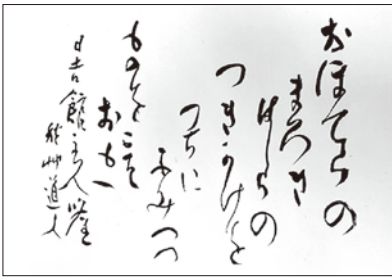 おほてらの
まろき
はしらの
つきかけを
つちに
ふみつつ
ものをこそ
おもへ
日吉館主人
秋艸道人